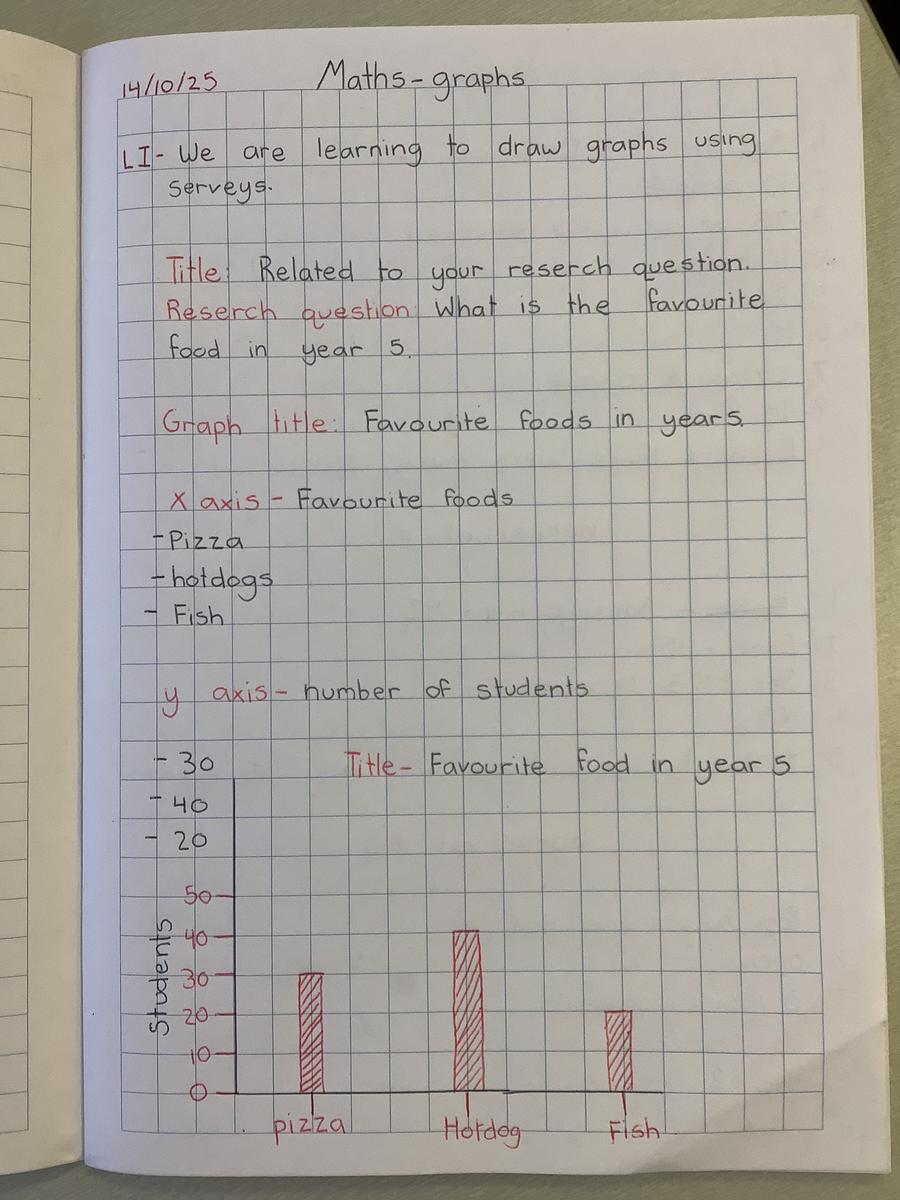 14/10/25 Maths-graphs
LI- We are learning to draw graphs using
serveys.
Title: Related to your reserch question.
Reserch question: What is the favourite
food in year 5.
Graph title: Favourite foods in year 5.
X axis - Favourite foods
- Pizza
- hotdogs
- Fish
y axis - number of students
- 30
Title- Favourite food in year 5
- 40
- 20
50
40
30
20
10
0
Students
pizza Hotdog Fish